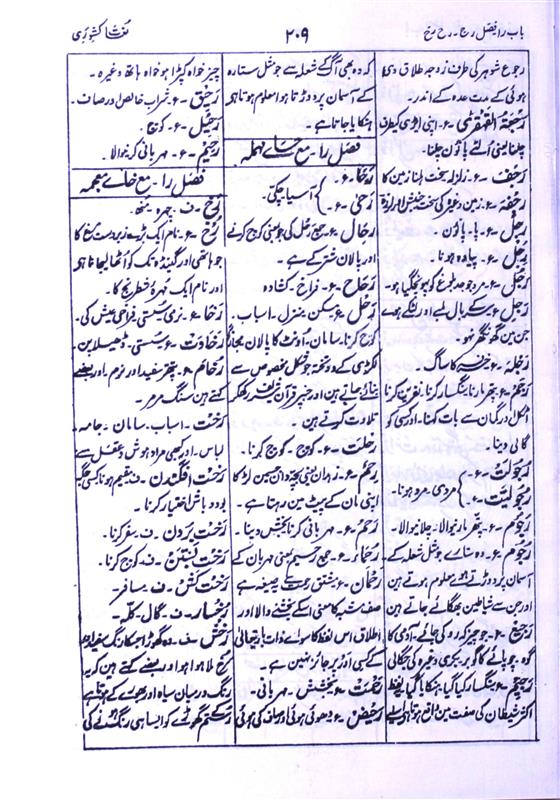 باب را فصل رج - رح رخ
۲۰۹
لغات کشوری
رجوع شوہر کی طرف زوجہ طلاق دی
ہوئی کے مدت عدہ کے اندر۔
رجعۃ القہقری - ع۔ اپنی ایڑی کیطرف
چلنا یعنی اُلٹے پاؤن چلنا۔
رجف - ع۔ زلزلہ سخت ہلنا زمین کا
رجفۃ - ع۔ زمین وغیرہ کی سخت جنبش اور لرزہ
رجل - ع۔ پا۔ پاؤن۔
رجل - ع۔ پیادہ ہونا۔
رجل - ع۔ مرد جو حد بلوغ کو پہونچگیا ہو۔
رجل - ع۔ سر کے بال لمبے اور لٹکے ہوے
جن مین گھونگھر نہو۔
رجلہ - ع۔ خرفہ کا ساگ۔
رجم - ع۔ پتھر مارنا سنگسار کرنا۔ نفرین کرنا
اٹکل اور گمان سے بات کہنا۔ اور کسی کو
گالی دینا۔
رجولت - ع۔
رجولیت - ع۔ مردی۔ مرد ہونا۔
رجوم - ع۔ پتھر مارنیوالا۔ چلانیوالا۔
رجوم - ع۔ وہ ستارے جو مثل شعلہ کے
آسمان پر دوڑتے ہوے معلوم ہوتے ہین
اور جن سے شیاطین بھگائے جاتے ہین
رجیع - ع۔ جو چیز کہ رد کی جائے۔ آدمی کا
گوہ چوپائے کا گوبر بکری وغیرہ کی جگالی
رجیم - ع۔ سنگسار کیا گیا۔ ہنکایا گیا یہ لفظ
اکثر شیطان کی صفت مین واقع ہوتا ہے اسلیے
کہ وہ بھی آگ کے شعلہ سے جو مثل ستارہ
کے آسمان پر دوڑتا ہوا معلوم ہوتا ہے
ہنکایا جاتا ہے۔
فصل را۔ مع حاے مہملہ
رحا - ع۔
رحی - ع۔ آسیا چکی۔
رحال - ع۔ جمع رحل کی جو بمعنی کوچ کرنے
اور پالان شتر کے ہے۔
رحاح - ع۔ فراخ۔ کشادہ
رحل - ع۔ مسکن۔ منزل۔ اسباب۔
کوچ کرنا۔ سامان۔ اونٹ کا پالان مجازاً
لکڑی کے دو تختہ جو شکل مخصوص سے
بنائے جاتے ہین اور جنپر قرآن شریف رکھکر
تلاوت کرتے ہین۔
رحلت - ع۔ کوچ۔ کوچ کرنا۔
رحم - ع۔ زہدان یعنی بچہ دان جسمین لڑکا
اپنی مان کے پیٹ مین رہتا ہے۔
رحم - ع۔ مہربانی کرنا بخش دینا۔
رحماء - ع۔ جمع رحیم بمعنی مہربان کے
رحمان - ع۔ مشتق رحمت سے یہ صیغہ ہے
صفت مشبہ کا معنی اسکے بخشنے والا اور
اطلاق اس لفظ کا سوے ذات باریتعالیٰ
کے کسی اور پر جائز نہین ہے۔
رحمت - ع۔ بخشش۔ مہربانی۔
رحیض - ع۔ دھوئی ہوئی اور صاف کی ہوئی
چیز خواہ کپڑا ہو خواہ ہاتھ وغیرہ۔
رحیق - ع۔ شراب خالص اور صاف۔
رحیل - ع۔ کوچ۔
رحیم - ع۔ مہربانی کرنیوالا۔
فصل را۔ مع خاے معجمہ
رخ - ف۔ چہرہ۔ منھ۔
رخ - ع۔ نام ایک بڑے زبردست مرغ کا
جو ہاتھی اور گینڈہ تک کو اُٹھا لیجاتا ہو
اور نام ایک مُہرۂ شطرنج کا۔
رخا - ع۔ نرمی۔ سستی۔ فراخی عیش کی۔
رخاوت - ع۔ سستی۔ ڈھیلاپن۔
رخام - ع۔ پتھر سفید اور نرم۔ اور بعضے
کہتے ہین سنگ مرمر۔
رخت - اسباب۔ سامان۔ جامہ۔
لباس۔ اور کبھی مراد ہوش و عقل سے
رخت افگندن - ف۔ مقیم ہونا کسی جگہ
بود و باش اختیار کرنا۔
رخت بردن - ف۔ سفر کرنا۔
رخت بستن - ف۔ کوچ کرنا۔
رخت کش - ف۔ مسافر۔
رخسار - ف۔ گال۔ کلہ۔
رخش - ف۔ وہ گھوڑا جسکا رنگ سفید اور
سرخ ملا ہوا ہو اور بعضے کہتے ہین کہ یہ
رنگ درمیان سیاہ اور بھورے کے ہوتا ہے
رستم گھوڑے کو ایسا ہی رنگ ہونے کی